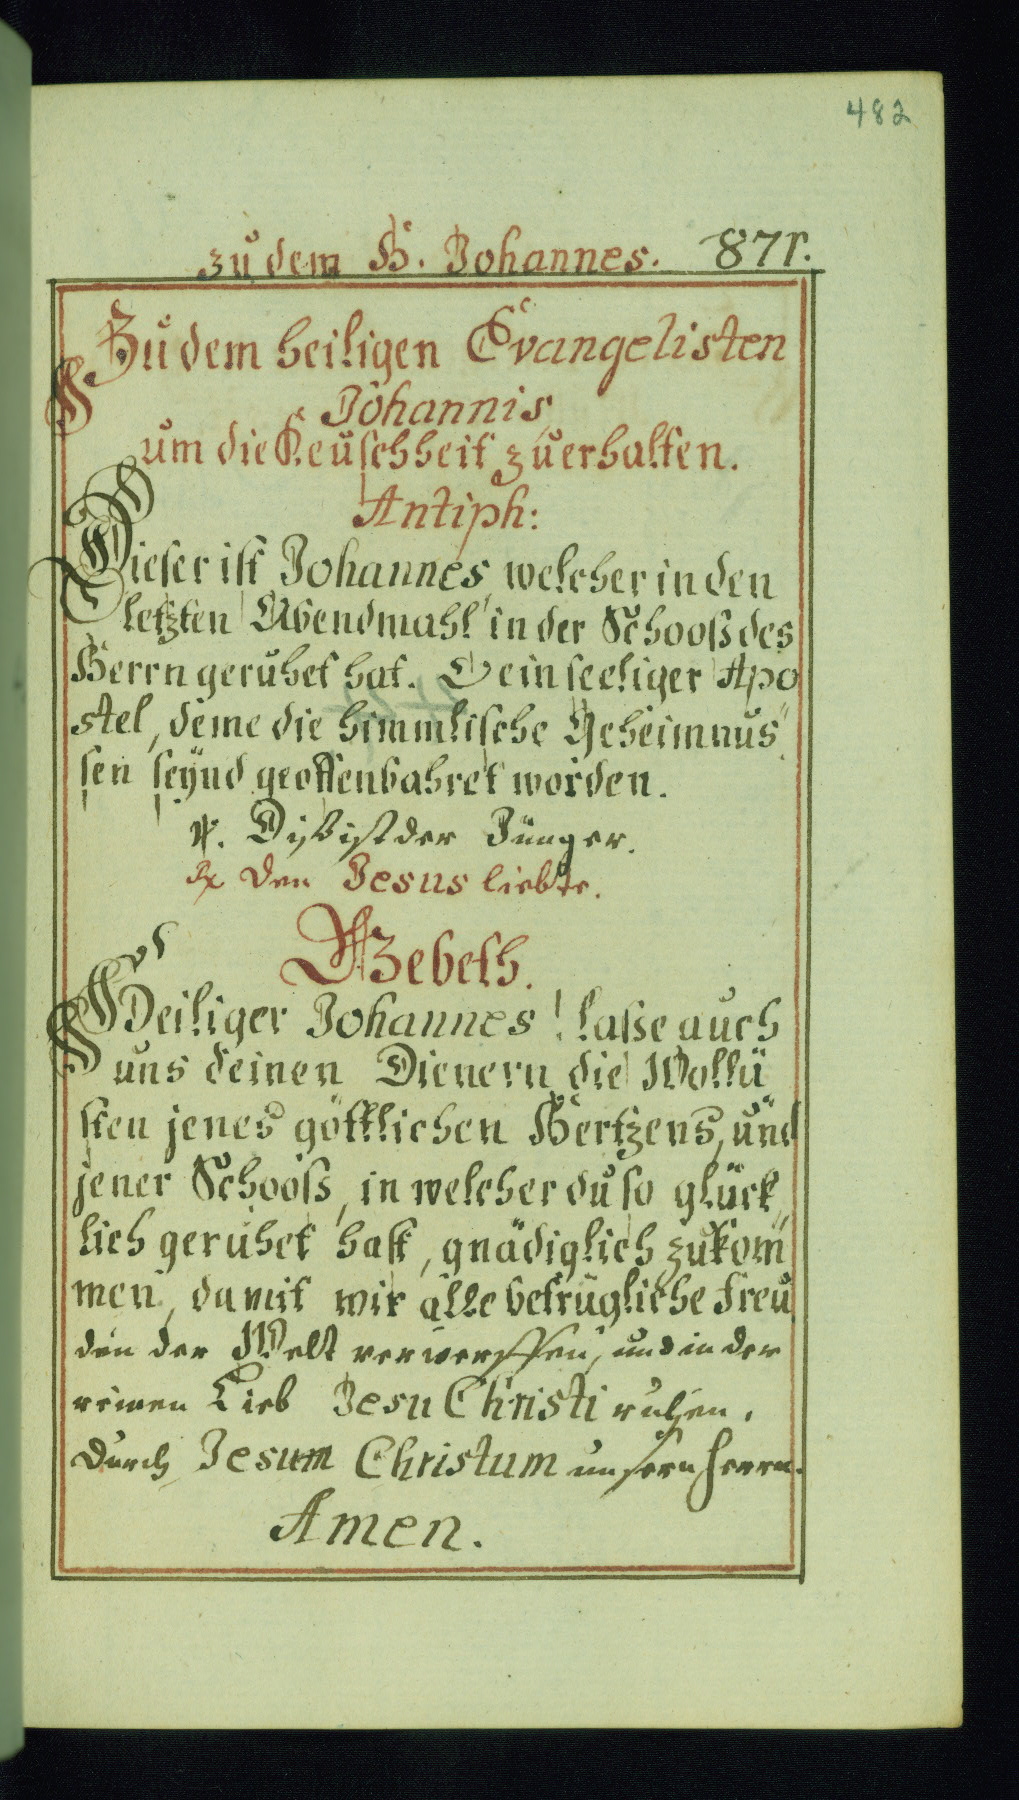 482
zu dem H. Johannes. 871.
Zu dem heiligen Evangelisten
Johannis,
um die Keuschheit zu erhalten.
Antiph:
Dieser ist Johannes, welcher in den
letzten Abendmahl in der Schooß des
Herrn geruhet hat. O ein seeliger Apo
stel, deme die himmlische Geheimnus"
sen seynd geoffenbahret worden.
℣. Diß ist der Jünger.
℞ den Jesus liebte.
Gebeth.
Heiliger Johannes! lasse auch
uns deinen Dienern die Wollü
sten jenes göttlichen Hertzens, und
jener Schooß, in welcher du so glück,,
lich geruhet hast, gnädiglich zukom"
men, damit wir alle betrügliche Freu
den der Welt verwerffen, und in der
reinen Lieb Jesu Christi ruhen.
Durch Jesum Christum unsern Herrn.
Amen.